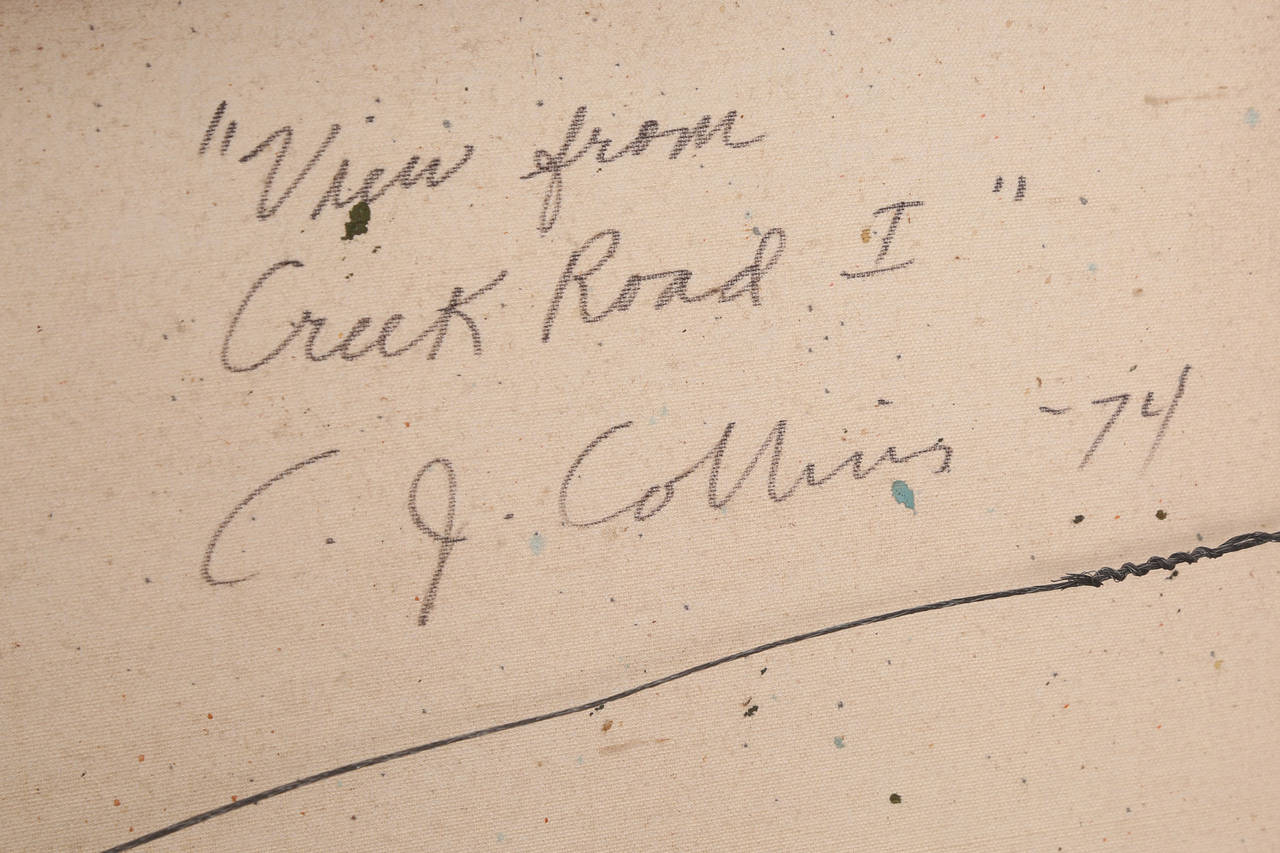 "View from
Creek Road I"
C. J. Collins -74